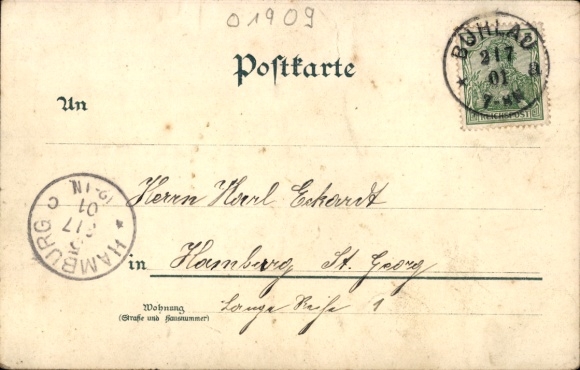 01909
BÜHLAU
* 2 1 7 a
01
7-8N
REICHSPOST
Postkarte
An
Herrn Karl Eckardt
HAMBURG
*
3 17
01
12-1N.
C
in Hamburg St. Georg
Wohnung
(Straße und Hausnummer)
Lange Reihe 1